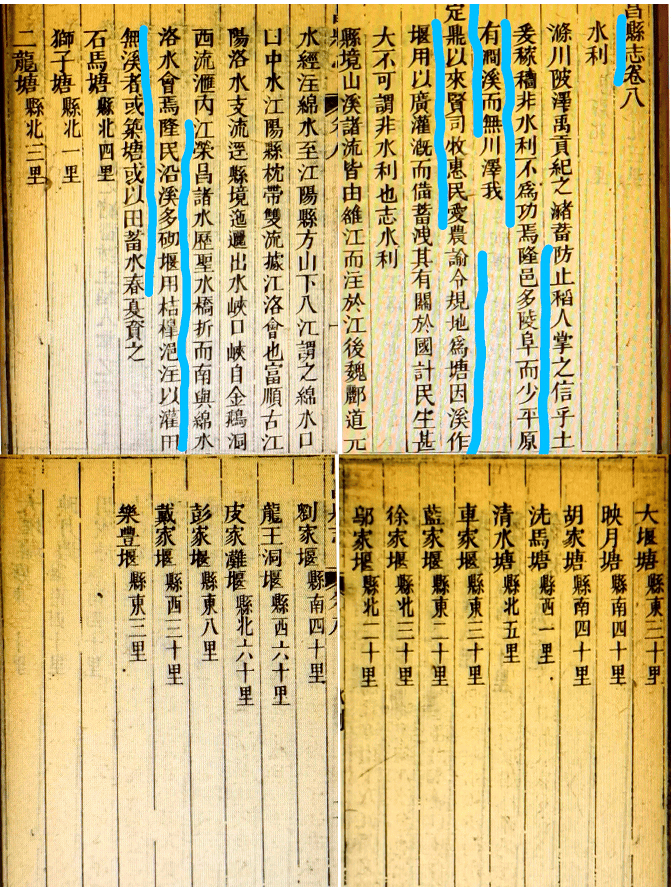 昌縣志卷八
水利
滌川陂澤禹貢紀之瀦蓄防止稻人掌之信乎土
爰稼穡非水利不爲功焉隆邑多陵阜而少平原
有澗溪而無川澤我
定鼎以來賢司牧惠民愛農諭令規地爲塘因溪作
堰用以廣灌漑而備蓄洩其有關於國計民生甚
大不可謂非水利也志水利
縣境山溪諸流皆由雒江而注於江後魏酈道元
水經注綿水至江陽縣方山下入江謂之綿水口
曰中水江陽縣枕帶雙流據江洛會也富順古江
陽洛水支流逕縣境迤邐出水峽口峽自金鵝洞
西流滙內江榮昌諸水歷聖水橋折而南與綿水
洛水會焉隆民沿溪多砌堰用桔槔浥注以灌田
無溪者或築塘或以田蓄水春夏資之
石馬塘縣北四里
獅子塘縣北一里
二龍塘縣北三里
大堰塘縣東三十里
映月塘縣南四十里
胡家塘縣南四十里
洗馬塘縣西一里
清水塘縣北五里
車家堰縣東三十里
藍家堰縣東二十里
徐家堰縣北三十里
鄔家堰縣北二十里
劉家堰縣南四十里
龍王洞堰縣西六十里
皮家灘堰縣北六十里
彭家堰縣東八里
戴家堰縣西三十里
樂豐堰縣東三里